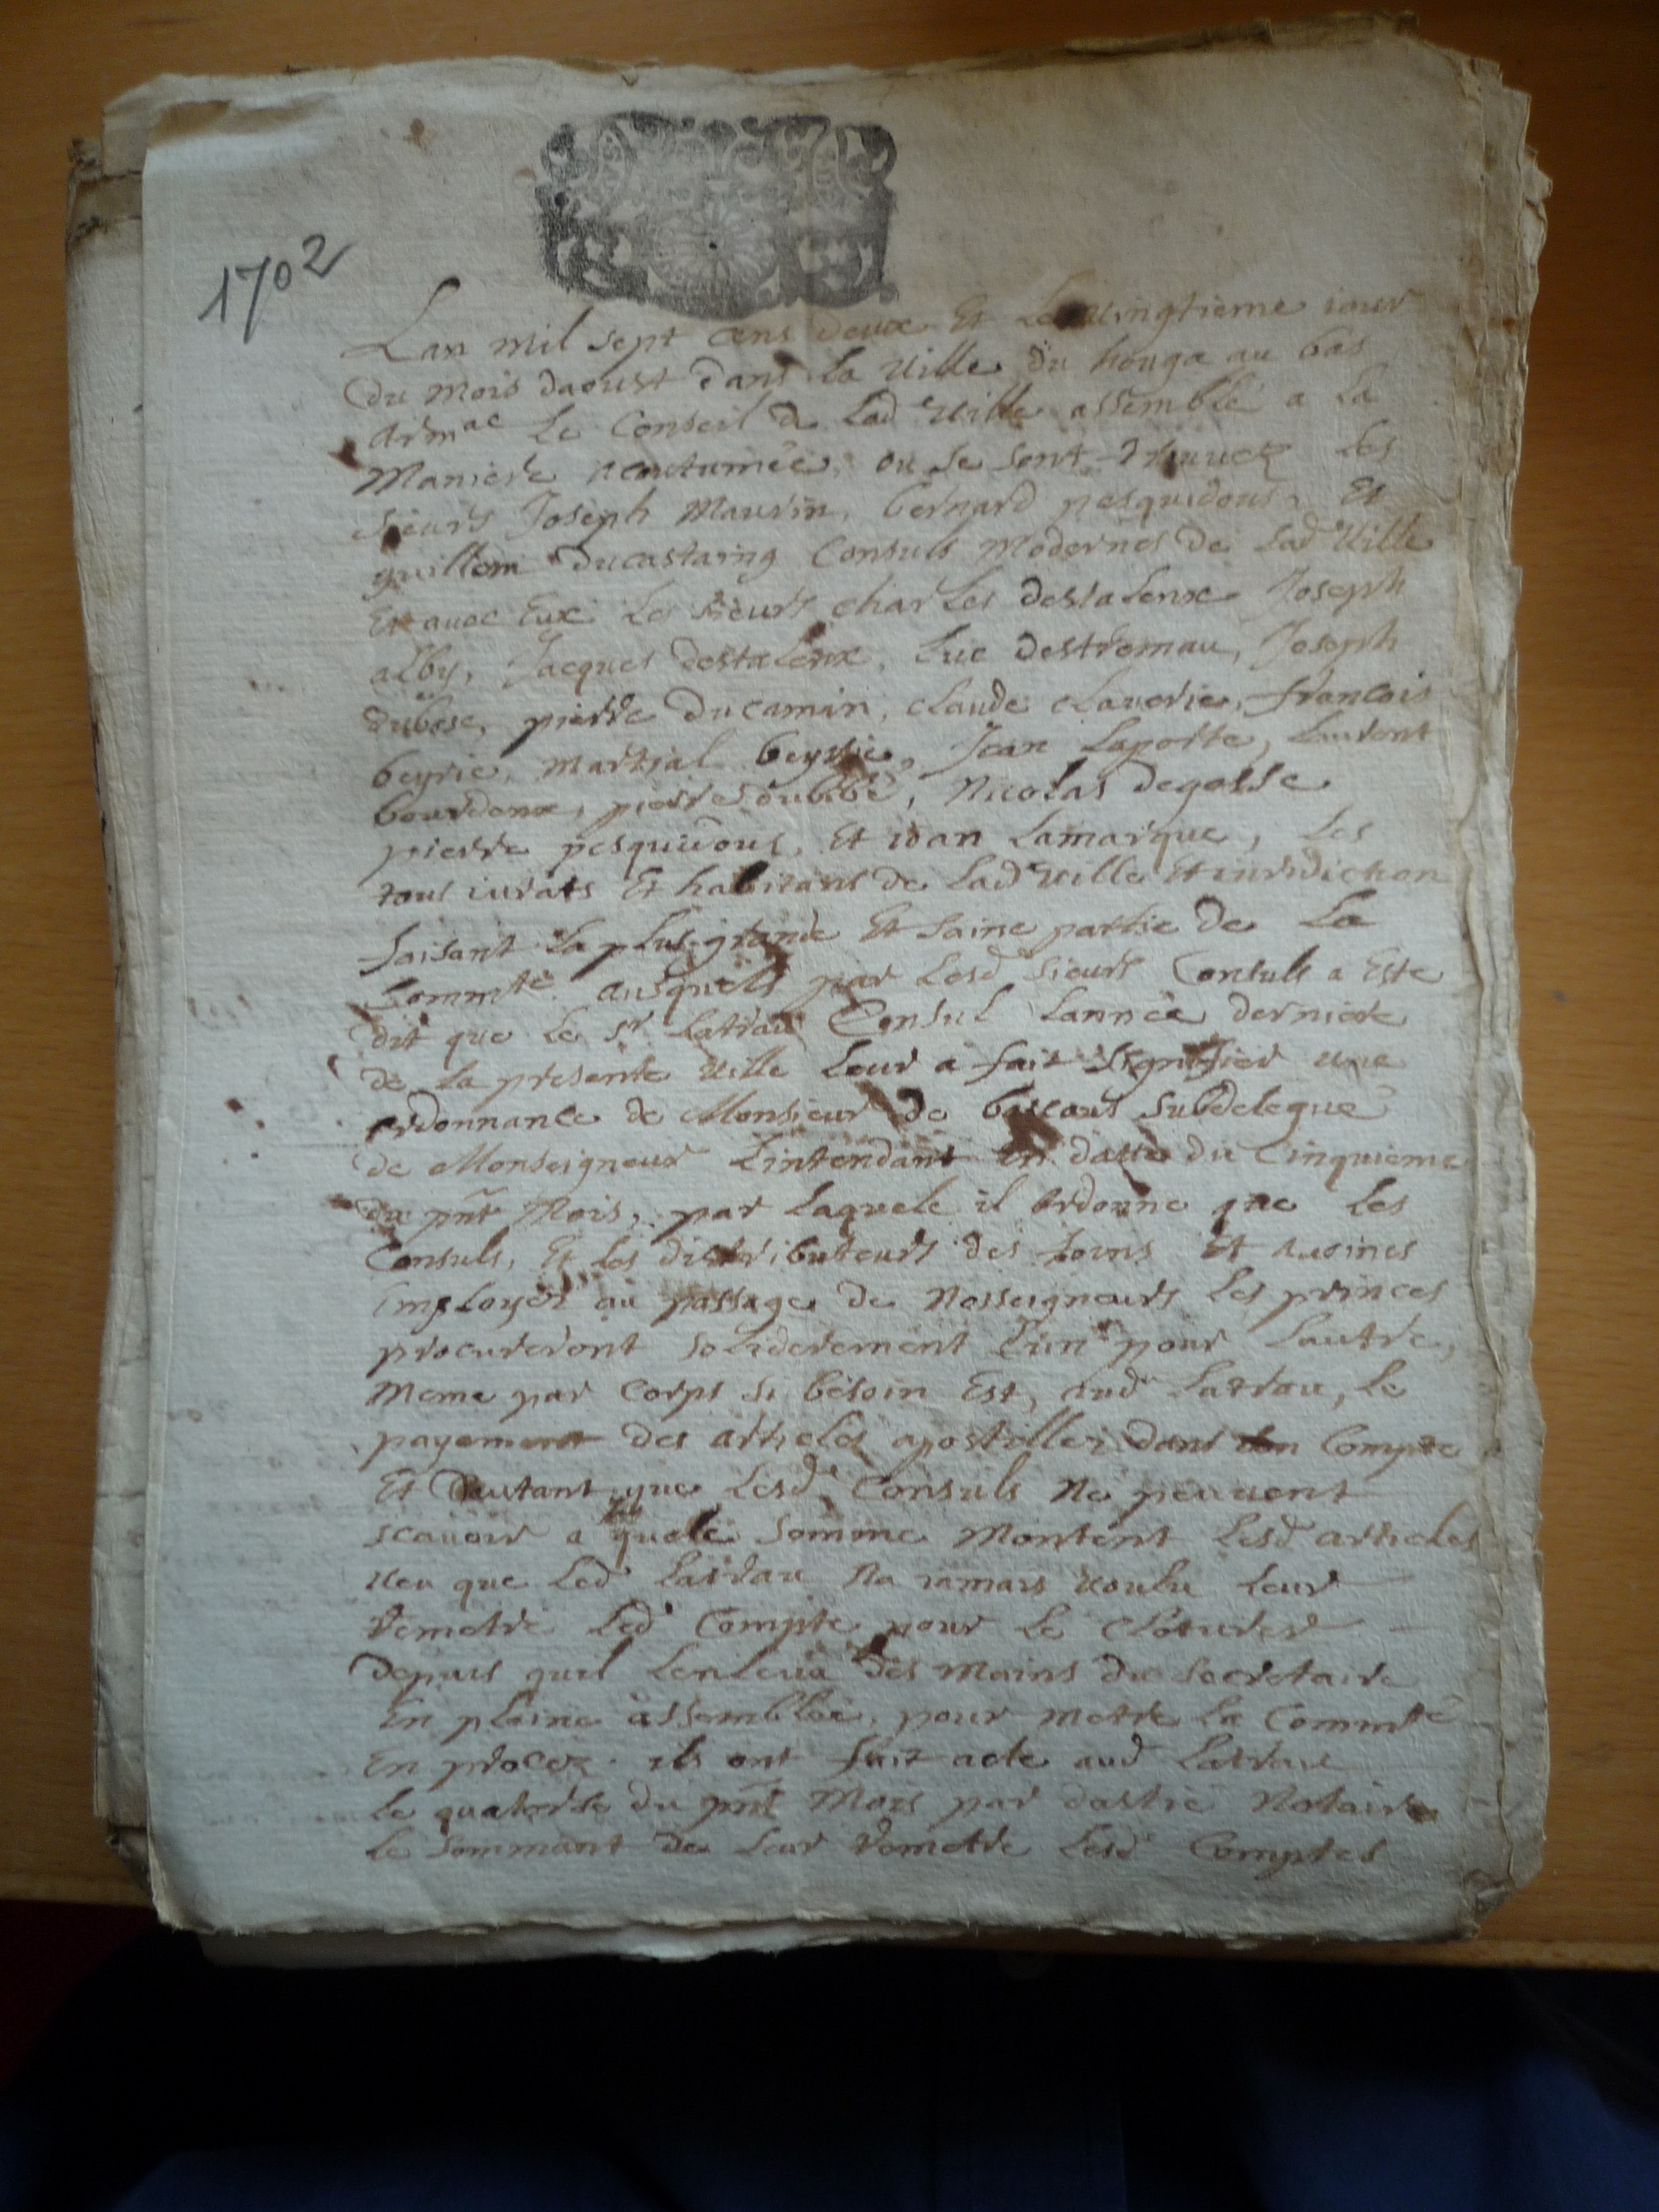 1702
Lan mil sept cens deux Et Le vingtieme iour
du mois daoust dans la Ville du houga au bas
Armac Le Conseil de Lade Ville assemblé a La
Maniere acoutumée, ou se sont trouvez les
sieurs Joseph Maurin, bernard pesquidous Et
guillem ducastaing Consuls Modernes de Lade Ville
Et avec Eux Les sieurs charles destalenx Joseph
alby, Jacques destalenx, Luc destremau, Joseph
dubosc, pierre ducamin, claude claverie, francois
beyrie, martial beyrie, Jean Laporte, Laurent
bourdenx, pierre dubibé, Nicolas degosse
pierre pesquidous, Et iean Lamarque, Les
tous iurats Et habitans de Lade Ville Et iuridiction
faisant la plus grande Et saine partie de La
Commté. ausquels par Lesd sieurs Consuls a Esté
dit que Le sr Latrau Consul Lannée derniere
de La presente Ville Leur a fait signifier une
ordonnance de Monsieur de bascous subdelegué
de Monseigneur Lintendant En datte du Cinquieme
du pnt Mois, par Laquele il ordonne que Les
Consuls, Et Les distributeurs des foins Et avoines
Employés au passage de Nosseigneurs Les princes
procureront soliderement Lun pour Lautre,
Meme par Corps si besoin Est, aud Latrau, Le
payement des articles apostilles dans son Compte
Et Dautant que Lesde Consuls Ne peuvent
scavoir a quele somme Montent Lesd articles
Veu que Led Latrau Na iamais voulu Leur
Remetre Led Compte pour Le Cloturer
depuis quil Lenleva des Mains du secretaire
En pleine assemblée, pour Metre La Commté
En procez. ils ont fait acte aud Latrau
Le quatorse du pnt Mois par dastie Notaire
Le sommant de Leur Remetre Lesd Comptes